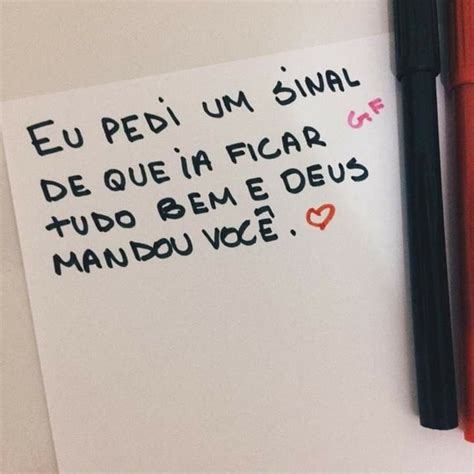 EU PEDI UM SINAL
DE QUE IA FICAR GF
TUDO BEM E DEUS
MANDOU VOCÊ.